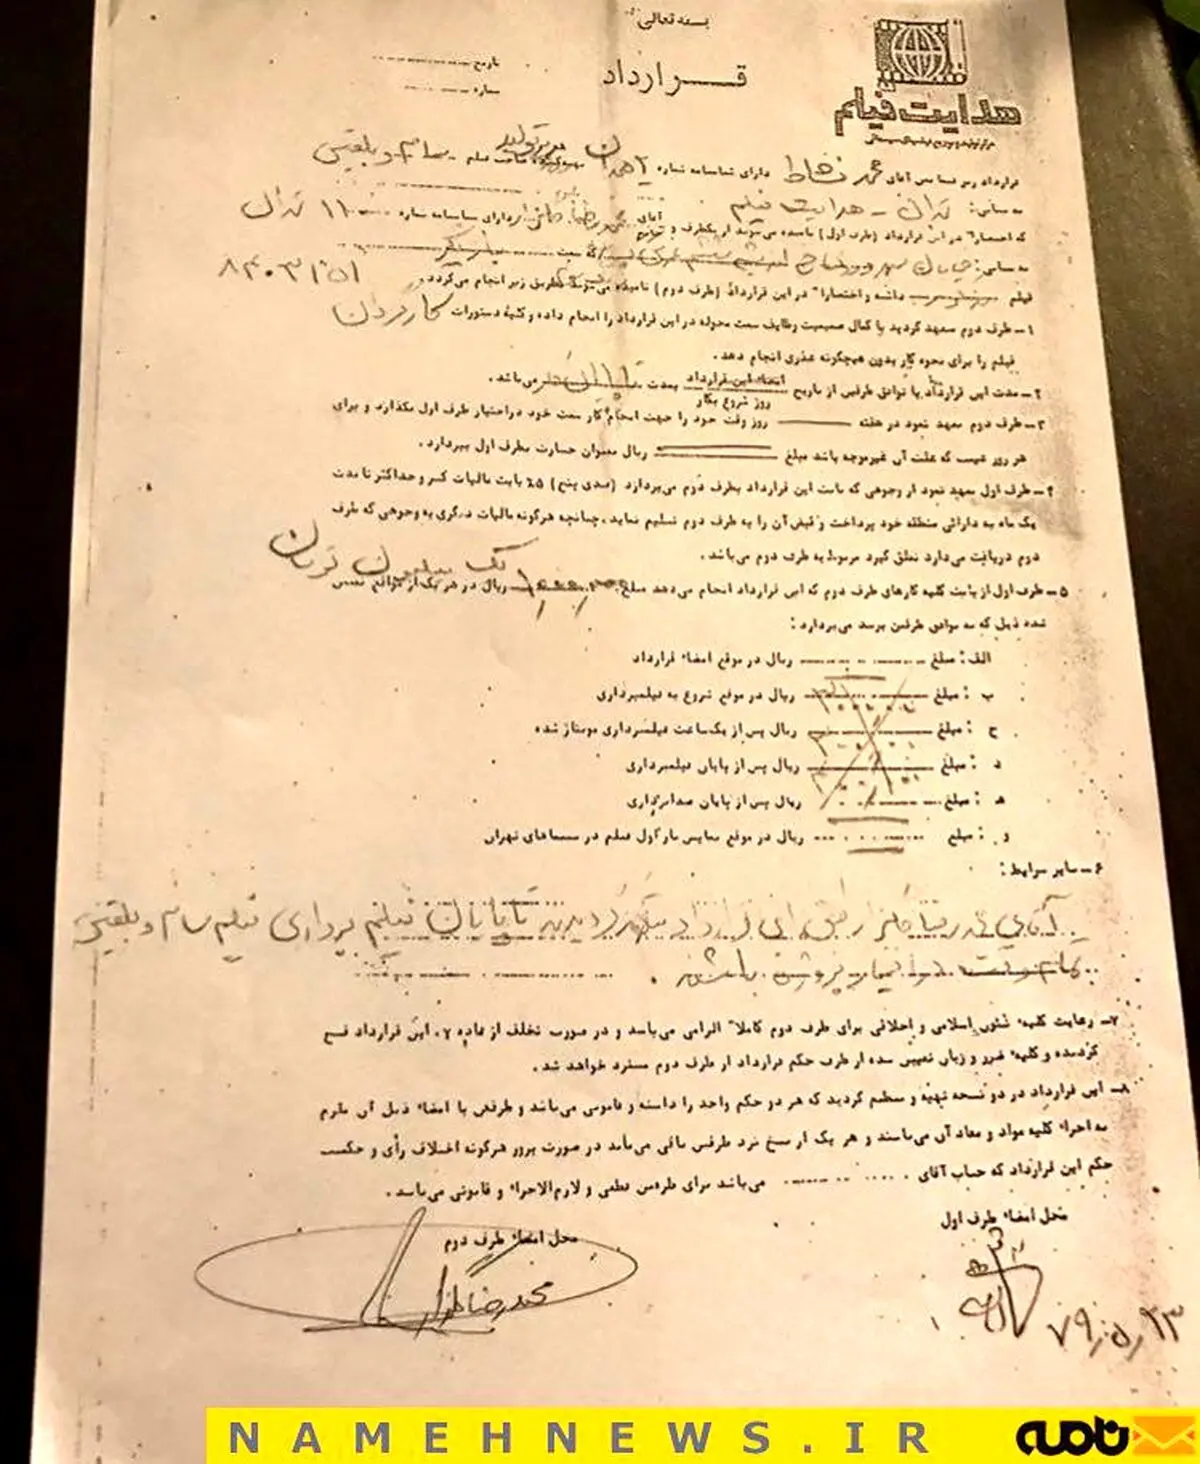 بسمه تعالی
هدایت فیلم
تاریخ
شماره
قرارداد
قرارداد زیر فیمابین آقای محمد نشاط دارای شناسنامه شماره مدیر تولید فیلم سام و بلقیس
به نشانی: تهران - هدایت فیلم
که اختصاراً در این قرارداد (طرف اول) نامیده می‌شوند از یکطرف و آقای محمدرضا گلزار دارای شناسنامه شماره ۱۱ تهران
به نشانی: خیابان سهروردی که سمت بازیگر
فیلم داشته و اختصاراً در این قرارداد (طرف دوم) نامیده می‌شود بطریق زیر انجام می‌گردد. ۸۴۰۳۱۵۱
۱- طرف دوم متعهد گردید با کمال صمیمیت وظایف سمت محوله در این قرارداد را انجام داده و کلیهٔ دستورات کارگردان
فیلم را برای نحوه کار بدون هیچگونه عذری انجام دهد.
۲- مدت این قرارداد با توافق طرفین از تاریخ امضاء این قرارداد بمدت تا پایان می‌باشد.
روز شروع بکار
۳- طرف دوم متعهد نمود در هفته روز وقت خود را جهت انجام کار سمت خود در اختیار طرف اول بگذارد و برای
هر روز غیبت که علت آن غیرموجه باشد مبلغ ریال بعنوان خسارت بطرف اول بپردازد.
۴- طرف اول متعهد نمود از وجوهی که بابت این قرارداد بطرف دوم می‌پردازد (صدی پنج) ۵٪ بابت مالیات کسر و حداکثر تا مدت
یک ماه به دارائی منطقه خود پرداخت و قبض آن را به طرف دوم تسلیم نماید، چنانچه هرگونه مالیات دیگری به وجوهی که طرف
دوم دریافت می‌دارد تعلق گیرد مربوط به طرف دوم می‌باشد.
یک میلیون تومان
۵- طرف اول از بابت کلیه کارهای طرف دوم که این قرارداد انجام می‌دهد مبلغ ریال در هر یک از مواقع تعیین
شده ذیل که به توافق طرفین برسد می‌پردازد:
الف: مبلغ ریال در موقع امضاء قرارداد
ب: مبلغ ریال در موقع شروع به فیلمبرداری
ج: مبلغ ریال پس از یکساعت فیلمبرداری مونتاژ شده
د: مبلغ ریال پس از پایان فیلمبرداری
هـ: مبلغ ریال پس از پایان صدابرداری
و: مبلغ ریال در موقع نمایش بار اول فیلم در سینماهای تهران
۶- سایر شرایط:
آقای محمدرضا گلزار طبق این قرارداد متعهد گردیدند تا پایان فیلم برداری فیلم سام و بلقیس
تمام وقت در اختیار پروژه باشند.
۷- رعایت کلیه شئون اسلامی و اخلاقی برای طرف دوم کاملاً الزامی می‌باشد و در صورت تخلف از ماده ۷، این قرارداد فسخ
گردیده و کلیه ضرر و زیان تعیین شده از طرف حکم قرارداد از طرف دوم مسترد خواهد شد.
۸- این قرارداد در دو نسخه تهیه و تنظیم گردید که هر دو حکم واحد را داشته و قانونی می‌باشد و طرفین با امضاء ذیل آن ملزم
به اجراء کلیه مواد و مفاد آن می‌باشند و هر یک از نسخ نزد طرفین باقی می‌ماند در صورت بروز هرگونه اختلاف رأی و حکمیت
حکم این قرارداد که جناب آقای می‌باشد برای طرفین قطعی و لازم‌الاجراء و قانونی می‌باشد.
محل امضاء طرف اول
محل امضاء طرف دوم
محمدرضا گلزار
۷۹٫۵٫۲۳
NAMEHNEWS.IR
نامه